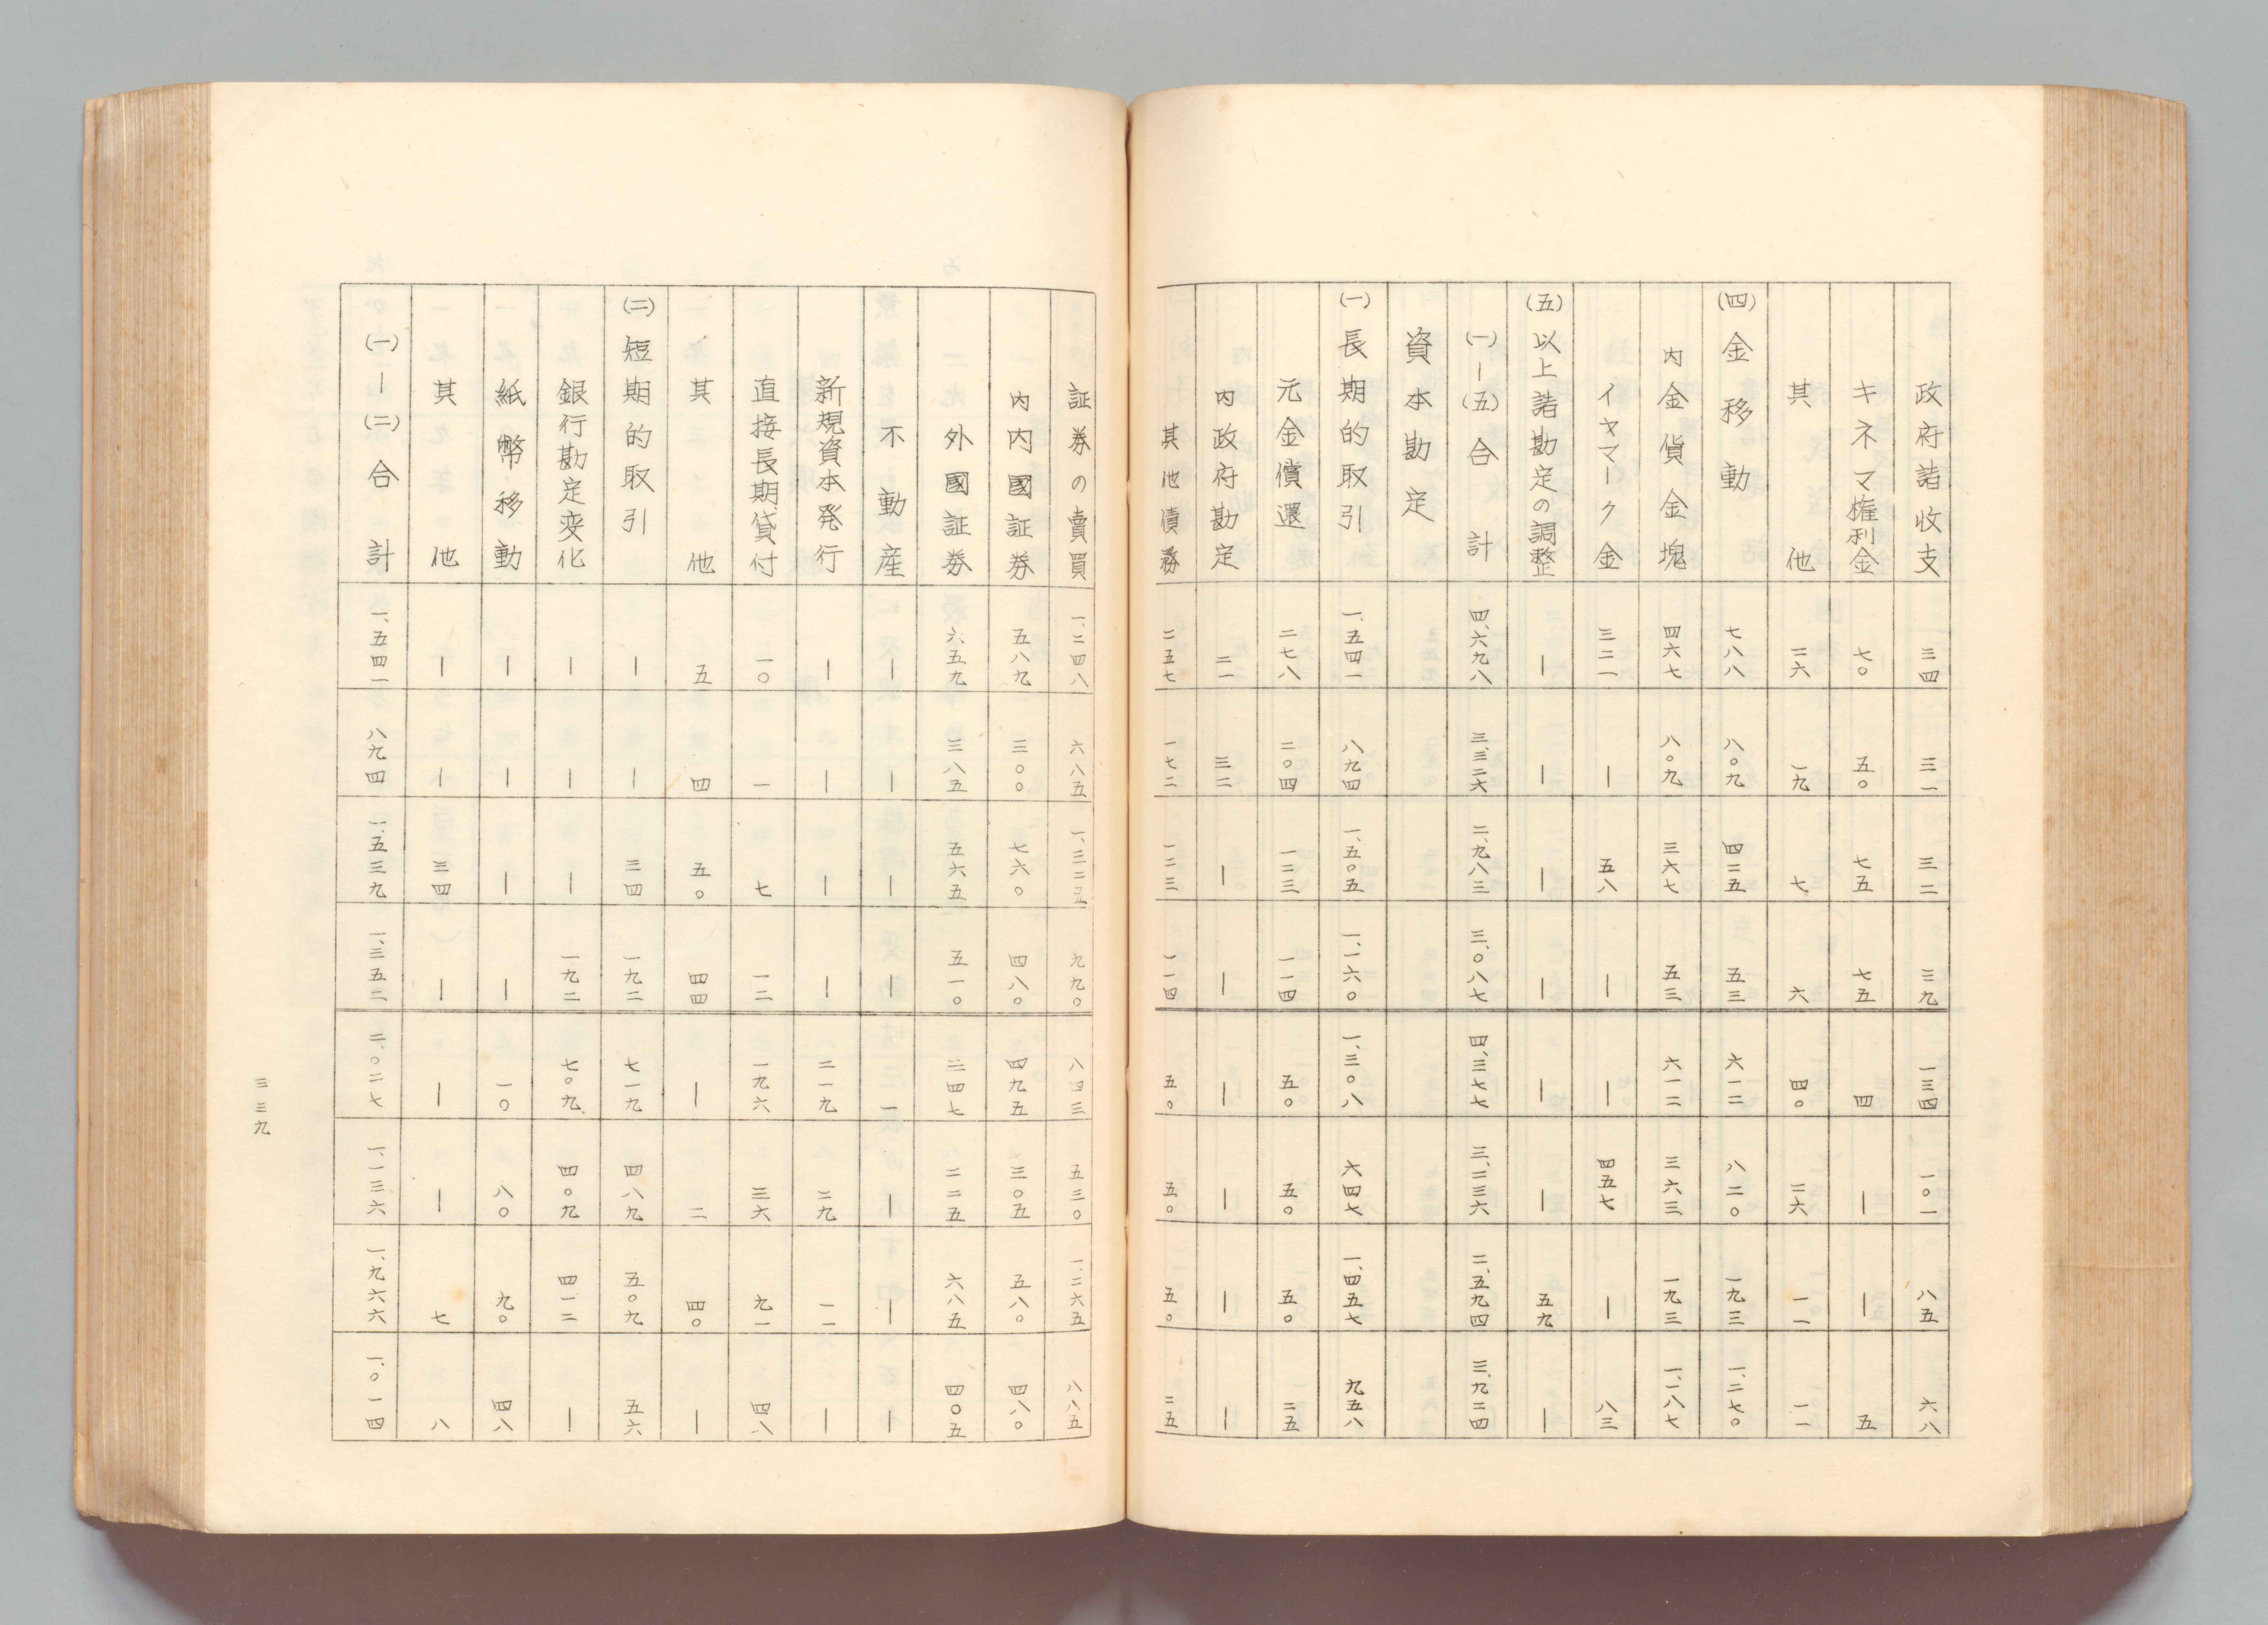 政府諸收支 三四 三一 三二 三九 一三四 一〇一 八五 六八
キネマ権利金 七〇 五〇 七五 七五 四 — — 五
其他 二六 一九 七 六 四〇 二六 一一 一一
(四)金移動 七八八 八〇九 四二五 五三 六一二 八二〇 一九三 一、二七〇
内金貨金塊 四六七 八〇九 三六七 五三 六一二 三六三 一九三 一、一八七
イヤマーク金 三二一 — 五八 — — 四五七 — 八三
(五)以上諸勘定の調整 — — — — — — 五九 —
(一)—(五)合計 四、六九八 三、三二六 二、九八三 三、〇八七 四、三七七 三、二三六 二、五九四 三、九二四
資本勘定
(一)長期的取引 一、五四一 八九四 一、五〇五 一、一六〇 一、三〇八 六四七 一、四五七 九五八
元金償還 二七八 二〇四 一二三 一一四 五〇 五〇 五〇 二五
内政府勘定 二一 三二 — — — — — —
其他債務 二五七 一七二 一二三 一一四 五〇 五〇 五〇 二五
証券の賣買 一、二四八 六八五 一、三二五 九九〇 八四三 五三〇 一、二六五 八八五
内内國証券 五八九 三〇〇 七六〇 四八〇 四九五 三〇五 五八〇 四八〇
外國証券 六五九 三八五 五六五 五一〇 三四七 二二五 六八五 四〇五
不動産 — — — — 一 — — —
新規資本発行 — — — — 二一九 二九 一一 —
直接長期貸付 一〇 一 七 一二 一九六 三六 九一 四八
其他 五 四 五〇 四四 — 二 四〇 —
(二)短期的取引 — — 三四 一九二 七一九 四八九 五〇九 五六
銀行勘定変化 — — — 一九二 七〇九 四〇九 四一二 —
紙幣移動 — — — — 一〇 八〇 九〇 四八
其他 — — 三四 — — — 七 八
(一)—(二)合計 一、五四一 八九四 一、五三九 一、三五二 二、〇二七 一、一三六 一、九六六 一、〇一四
三三九